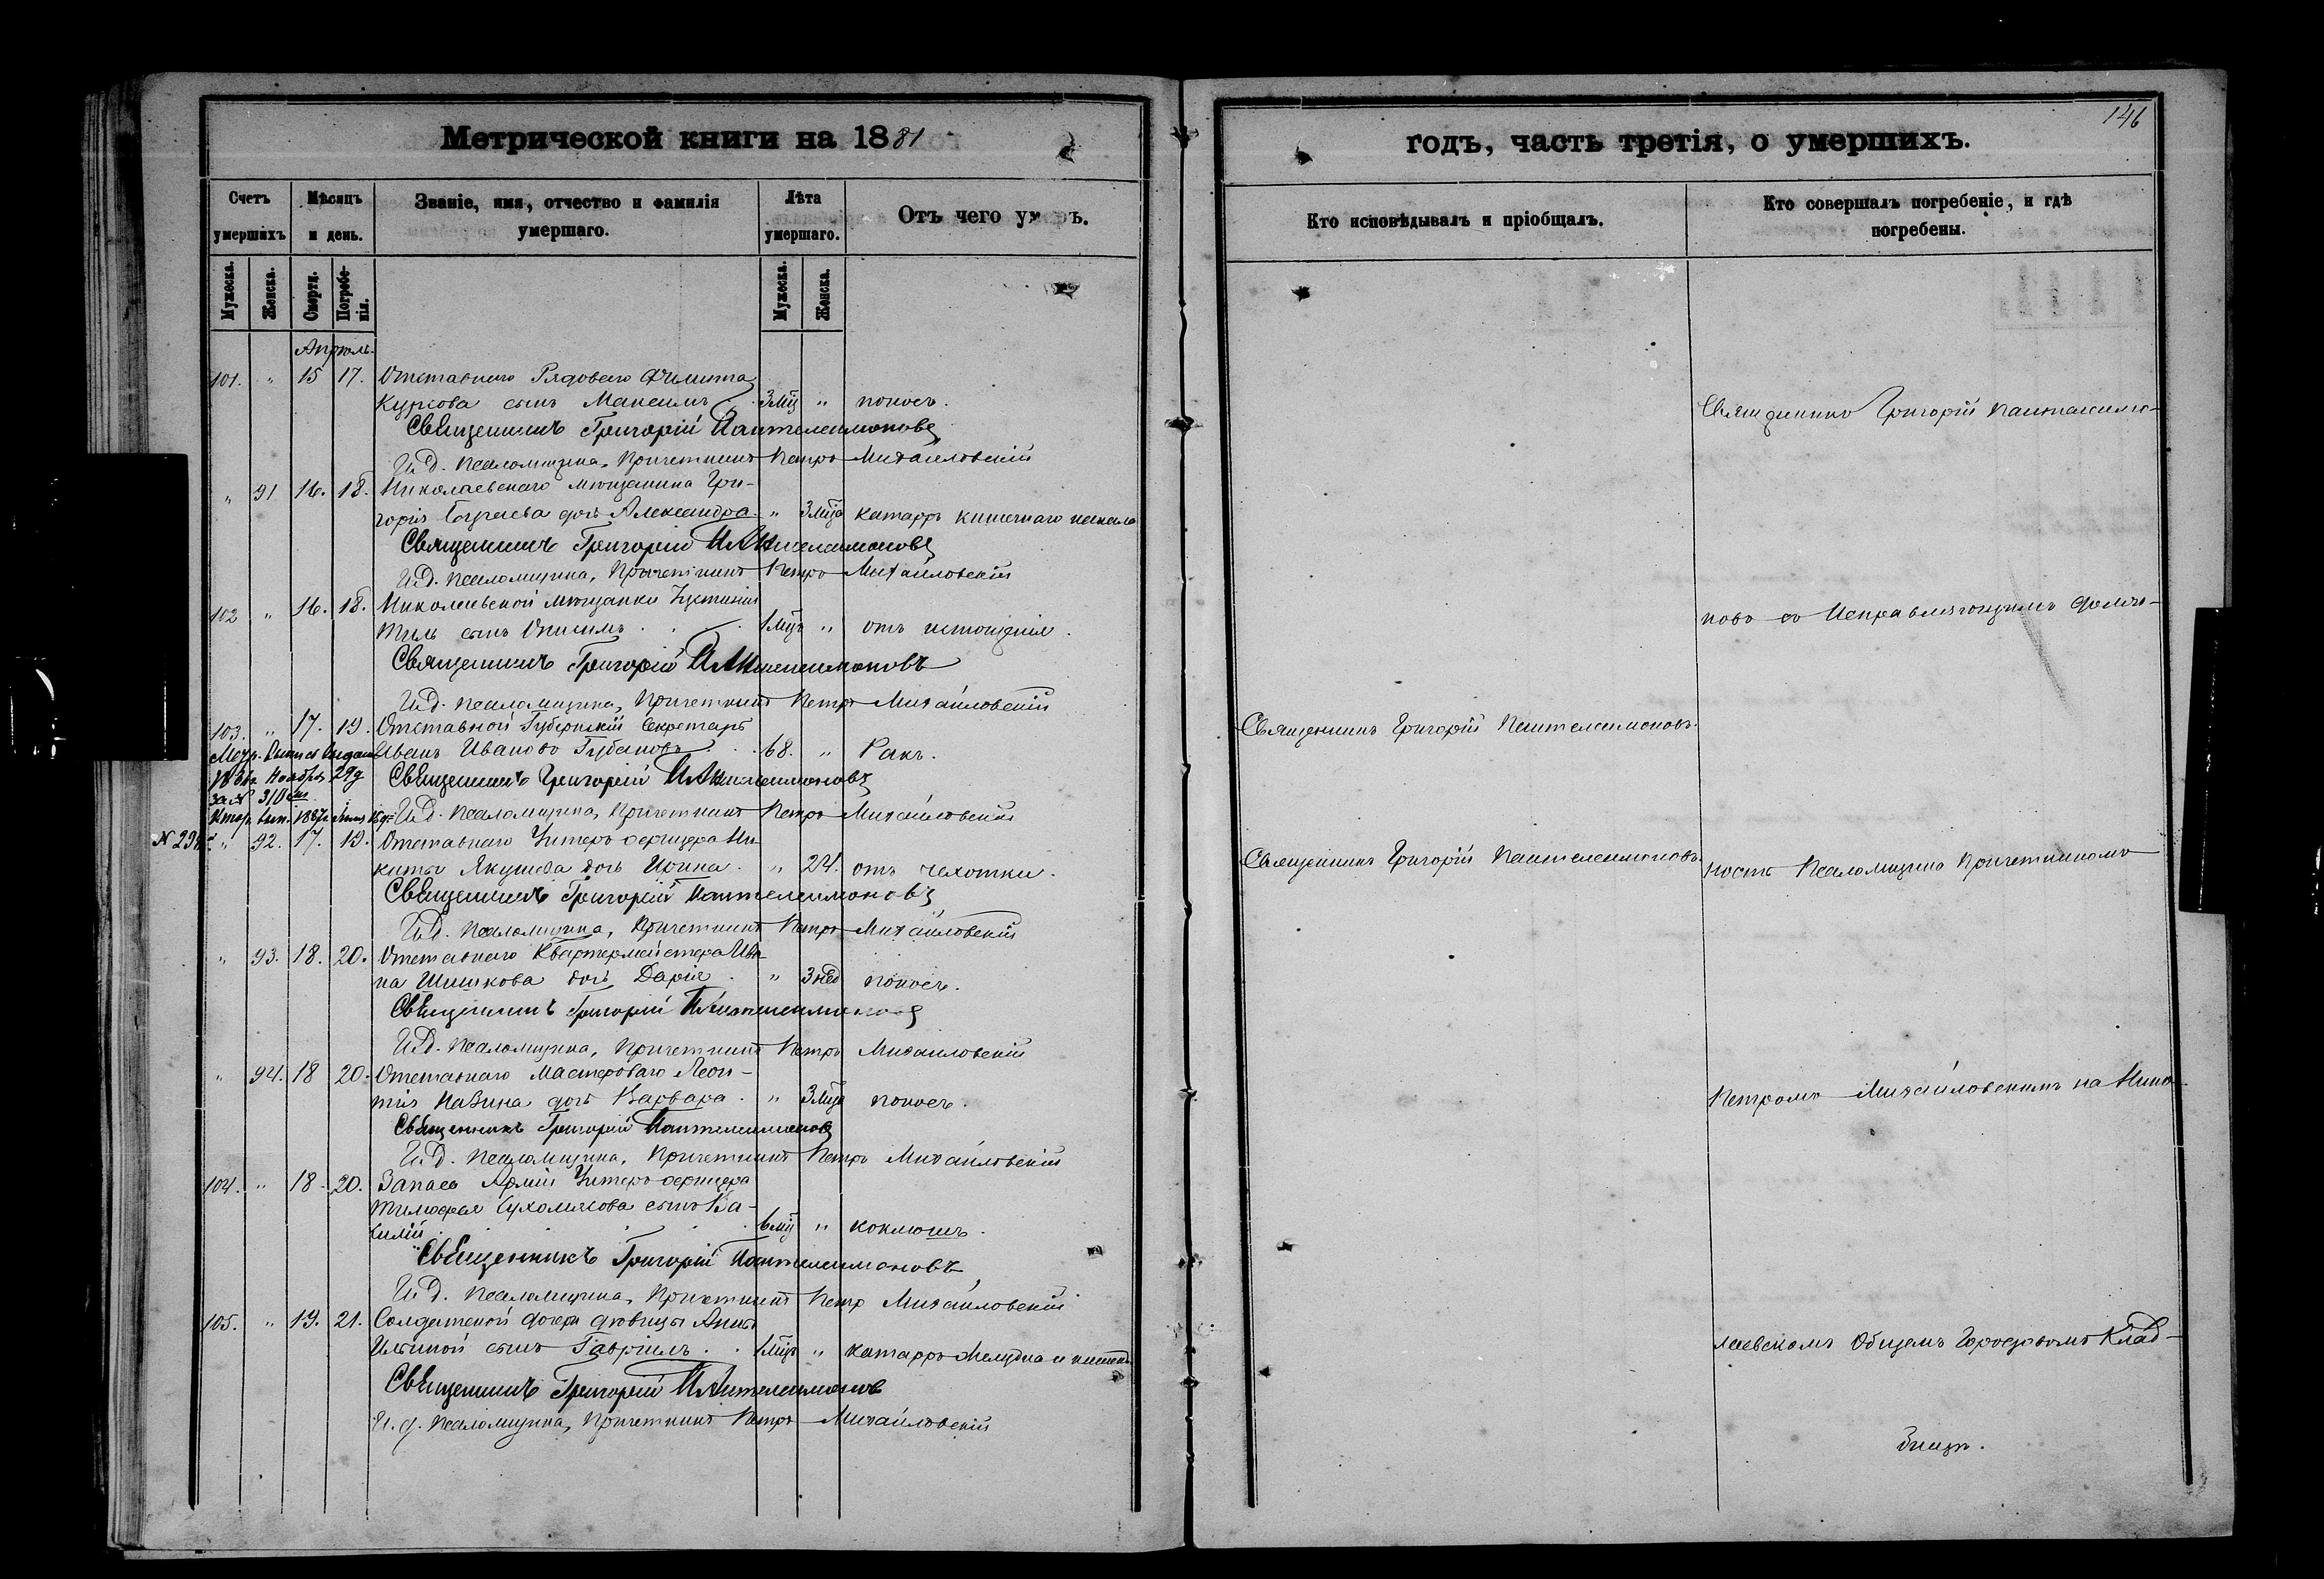 Метрической книги на 1881
Счетъ умершихъ
Мѣсяцъ и день.
Званіе, имя, отчество и фамилія умершаго.
Лѣта умершаго.
Отъ чего умеръ.
Мужеска. Женска. Смерти. Погребенія. Мужеска. Женска.
Апрѣль.
101. " 15 17. Отставнаго Рядоваго Филиппа
Куркова сынъ Максимъ . 3 мц " поносъ.
Священникъ Григорій Пантелеимоновъ
И.д. псаломщика, Причетникъ Петръ Михайловскій
" 91 16. 18. Николаевскаго мѣщанина Гри-
горія дочь Александра. " 3 мца катарръ кишечнаго канала
Священникъ Григорій Пантелеимоновъ
И.д. псаломщика, Причетникъ Петръ Михайловскій
102 " 16. 18. Николаевской мѣщанки Іустиніи
сынъ Онисимъ . . . 1 мцъ " отъ истощенія.
Священникъ Григорій Пантелеимоновъ
И.д. псаломщика, Причетникъ Петръ Михайловскій
103. " 17. 19. Отставной Губернскій Секретарь
Иванъ Ивановъ Губановъ . . 68. " Ракъ.
Метр. выпись выдана
Ноября 29
за № 310
Священникъ Григорій Пантелеимоновъ
Втор. вып. 1887
И.д. псаломщика, Причетникъ Петръ Михайловскій
" 92. 17. 19. Отставнаго Унтеръ офицера Ни-
киты Якушева дочь Ирина . " 24. отъ чахотки.
Священникъ Григорій Пантелеимоновъ
И.д. псаломщика, Причетникъ Петръ Михайловскій
" 93. 18. 20. Отставнаго Квартермейстера Ива-
на Шишкова дочь Дарія . " 3 нед поносъ.
Священникъ Григорій Пантелеимоновъ
И.д. псаломщика, Причетникъ Петръ Михайловскій
" 94. 18 20. Отставнаго Мастероваго Леон-
тія дочь Варвара . " 3 мца поносъ.
Священникъ Григорій Пантелеимоновъ
И.д. псаломщика, Причетникъ Петръ Михайловскій
104. " 18. 20. Запаса Арміи Унтеръ офицера
Тимофея Сухомлинова сынъ Ва-
силій . . . 6 мц " коклюшъ.
Священникъ Григорій Пантелеимоновъ
И.д. псаломщика, Причетникъ Петръ Михайловскій
105. " 19. 21. Солдатской дочери дѣвицы Анны
Ильиной сынъ Гавріилъ . . 1 мцъ " катарръ желудка и кишекъ
Священникъ Григорій Пантелеимоновъ
И.д. псаломщика, Причетникъ Петръ Михайловскій
146
годъ, часть третія, о умершихъ.
Кто исповѣдывалъ и пріобщалъ.
Кто совершалъ погребеніе, и гдѣ погребены.
Священникъ Григорій Пантелеимо-
новъ съ Исправляющимъ долж-
Священникъ Григорій Пантелеимоновъ.
Священникъ Григорій Пантелеимоновъ.
ность Псаломщика Причетникомъ
Петромъ Михайловскимъ на Нико-
лаевскомъ Общемъ Городовомъ Клад-
бищѣ.